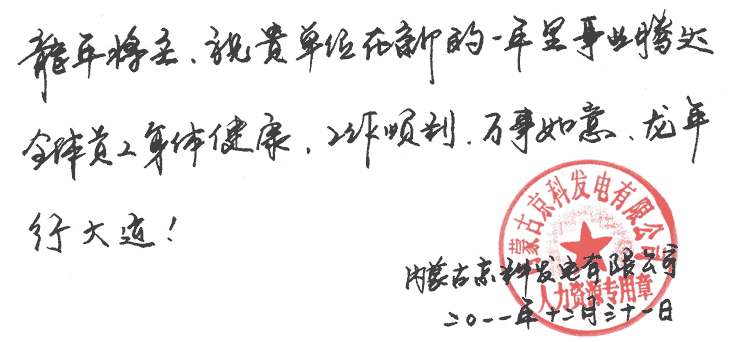 龍年将至、祝贵单位在新的一年里事业腾达
全体员工身体健康，工作顺利、万事如意、龙年
行大运！
内蒙古京科发电有限公司
人力资源专用章
内蒙古京科发电有限公司
二〇一一年十二月三十一日